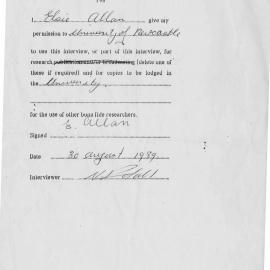 I, Elsie Allan give my
permission to University of Newcastle
to use this interview, or part of this interview, for
research, publication and/or broadcasting (delete one of
these if required) and for copies to be lodged in
the University
for the use of other bona fide researchers.
Signed E. Allan
Date 30 August 1989
Interviewer